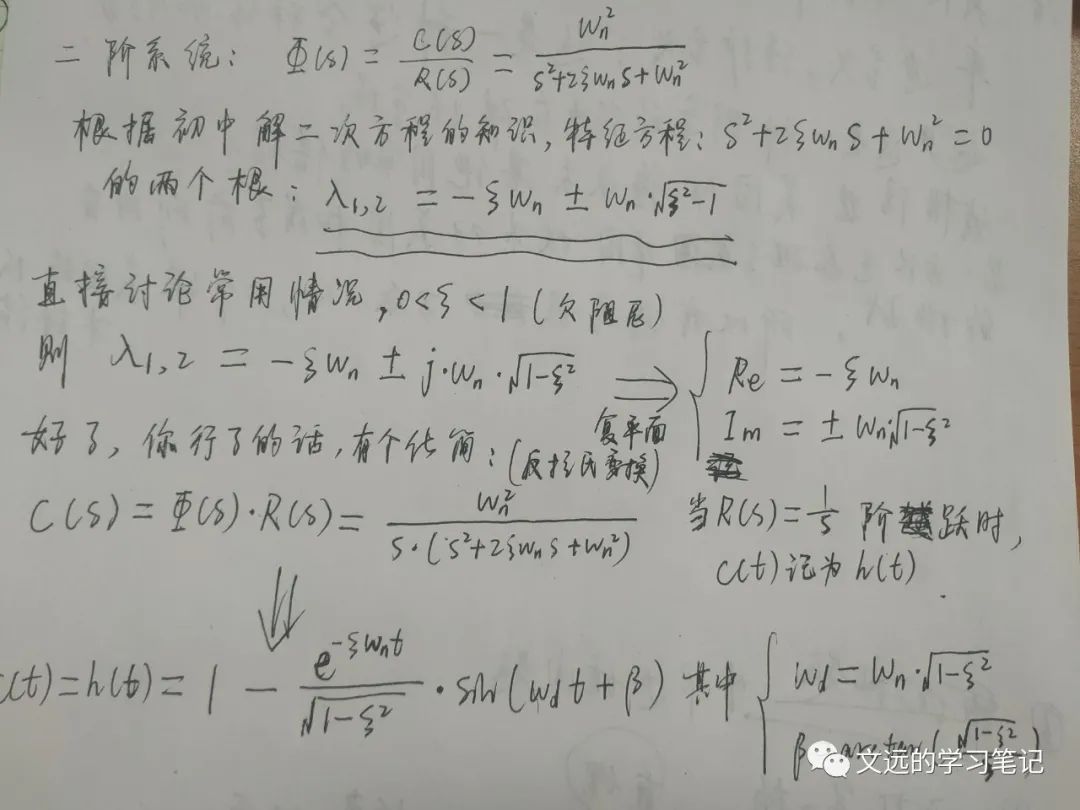 二阶系统: Φ(s) = C(s)/R(s) = ωn²/(s²+2ξωns+ωn²)
根据初中解二次方程的知识,特征方程: s²+2ξωns+ωn²=0
的两个根: λ1,2 = -ξωn ± ωn·√(ξ²-1)
直接讨论常用情况, 0<ξ<1 (欠阻尼)
则 λ1,2 = -ξωn ± j·ωn·√(1-ξ²) ⇒ { Re = -ξωn
复平面 Im = ±ωn·√(1-ξ²)
好了, 你行了的话, 有个化简: (反拉氏变换)
C(s) = Φ(s)·R(s) = ωn²/(s·(s²+2ξωns+ωn²)) 当R(s)=1/s 阶跃时,
c(t)记为h(t).
⇓
c(t)=h(t)= 1 - e^(-ξωnt)/√(1-ξ²) · sin(ωdt+β) 其中 { ωd=ωn·√(1-ξ²)
β arctan(√(1-ξ²)/ξ)
文远的学习笔记